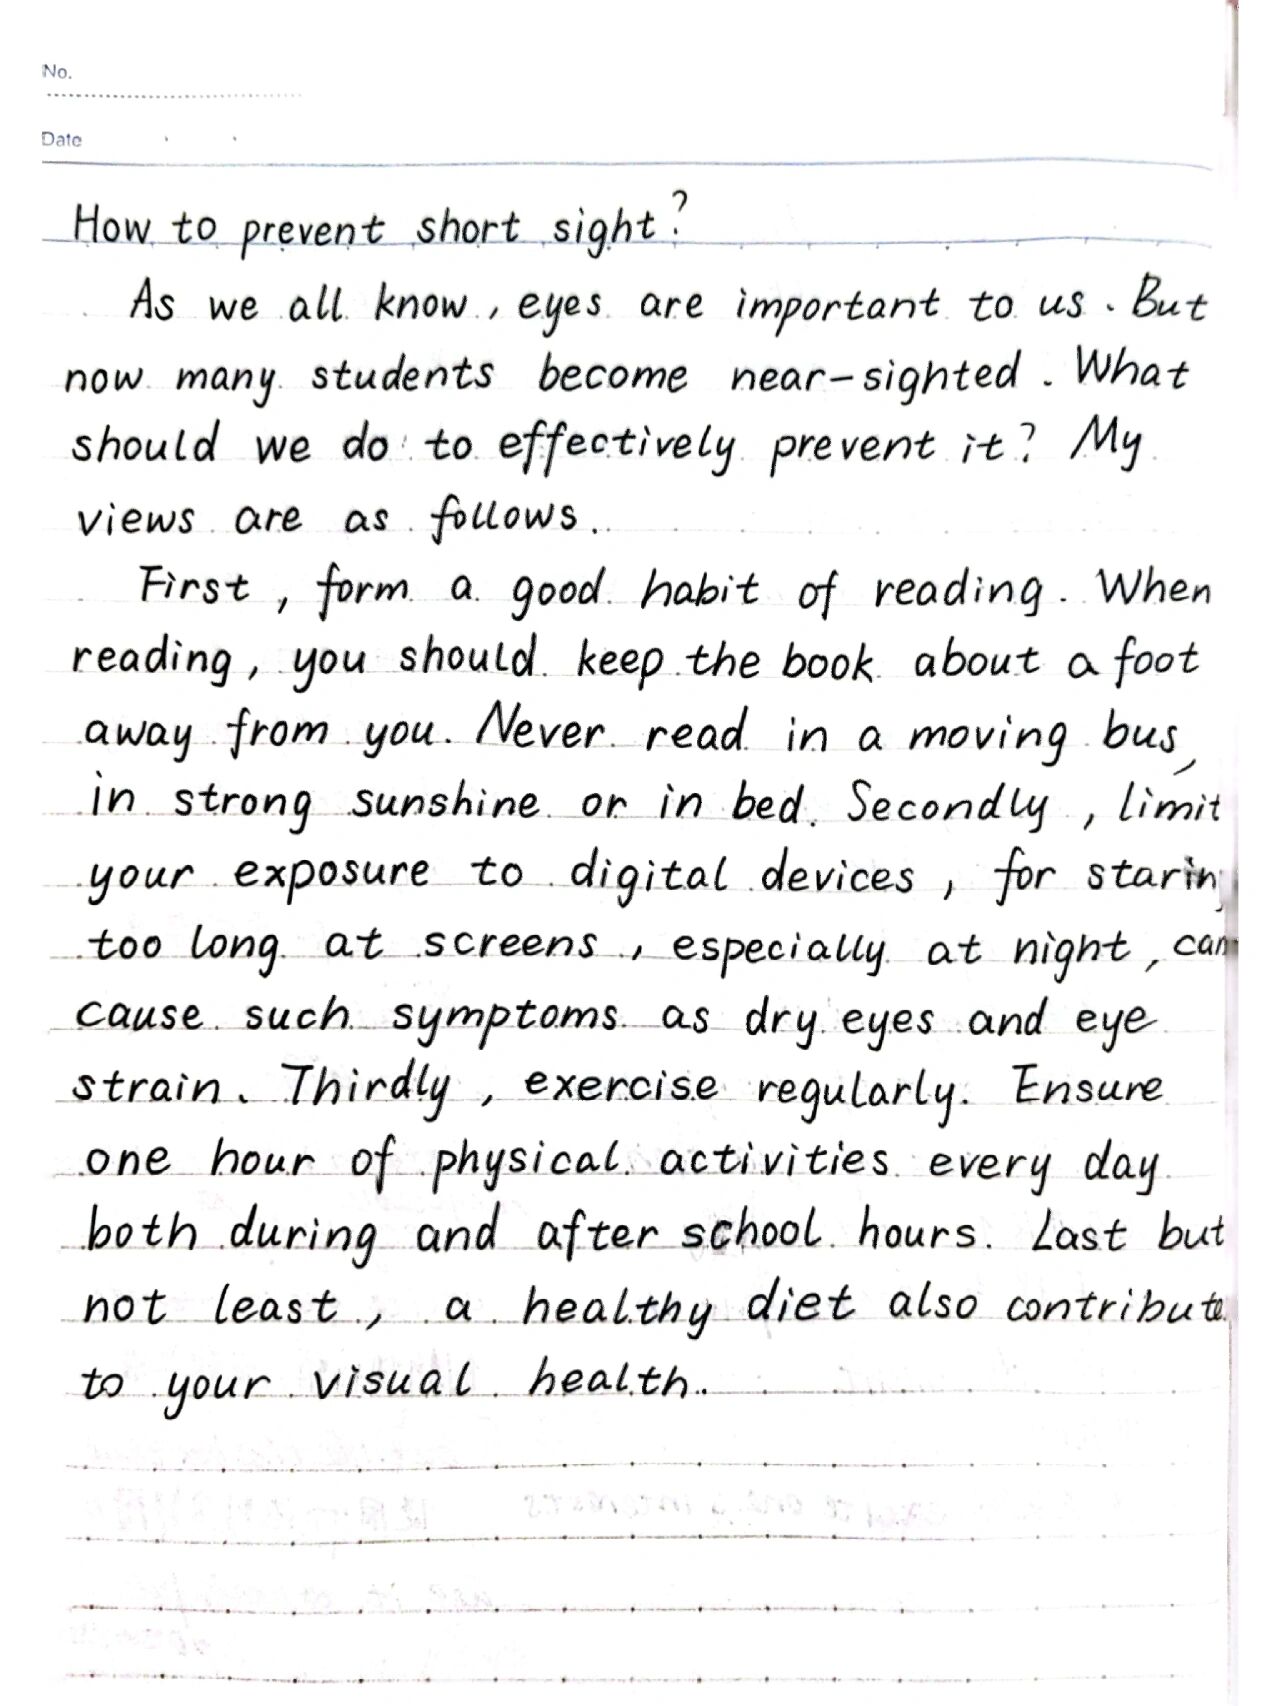 No.
Date
How to prevent short sight?
As we all know, eyes are important to us. But
now many students become near-sighted. What
should we do to effectively prevent it? My
views are as follows.
First, form a good habit of reading. When
reading, you should keep the book about a foot
away from you. Never read in a moving bus,
in strong sunshine or in bed. Secondly, limit
your exposure to digital devices, for staring
too long at screens, especially at night, can
cause such symptoms as dry eyes and eye
strain. Thirdly, exercise regularly. Ensure
one hour of physical activities every day
both during and after school hours. Last but
not least, a healthy diet also contribute
to your visual health.